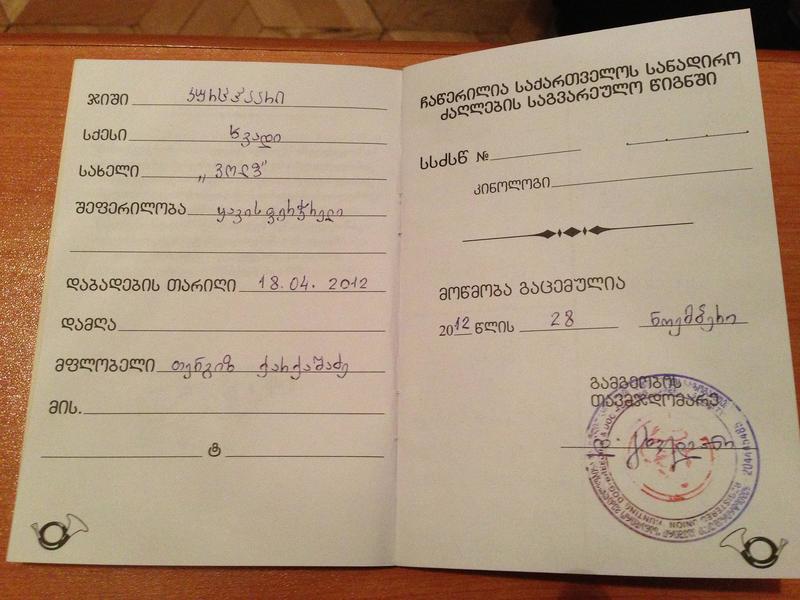 ჯიში კურცჰაარი
სქესი ხვადი
სახელი „ვოლფ“
შეფერილობა ყავისფერჭრელი
დაბადების თარიღი 18.04. 2012
დამღა
მფლობელი თენგიზ ქარქაშაძე
მის.
ტ
ჩაწერილია საქართველოს სანადირო
ძაღლების საგვარეულო წიგნში
სსძსწ №
კინოლოგი
მოწმობა გაცემულია
2012 წლის 28 ნოემბერი
გამგეობის
თავმჯდომარე
REGISTERED UNION HUNTING DOG